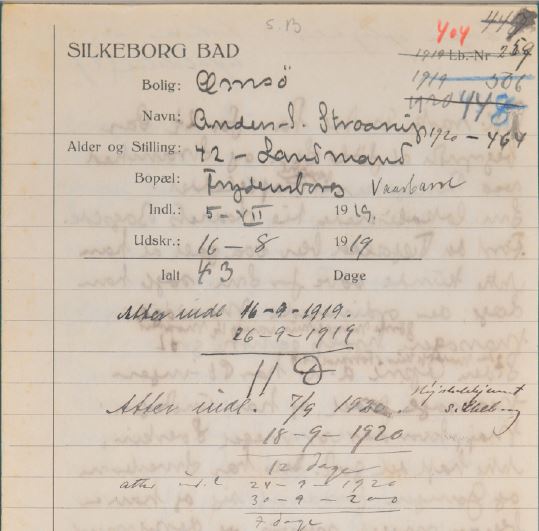 S.B
447
404
SILKEBORG BAD
1919 Lb.-Nr 259
1919 506
Bolig: Ømsø
1920 448
Navn: Anders S.
1920 - 464
Alder og Stilling: 42 - Landmand
Bopæl: Frydensborg
Indl.: 5 - VII 1919.
Udskr.: 16 - 8 1919
Ialt 43 Dage
Atter indl 16-9-1919.
26-9-1919
11 D
Atter indl. 7/9 1920.
18-9-1920
12 dage
atter indl 24-9-1920
30-9-200
7 dage